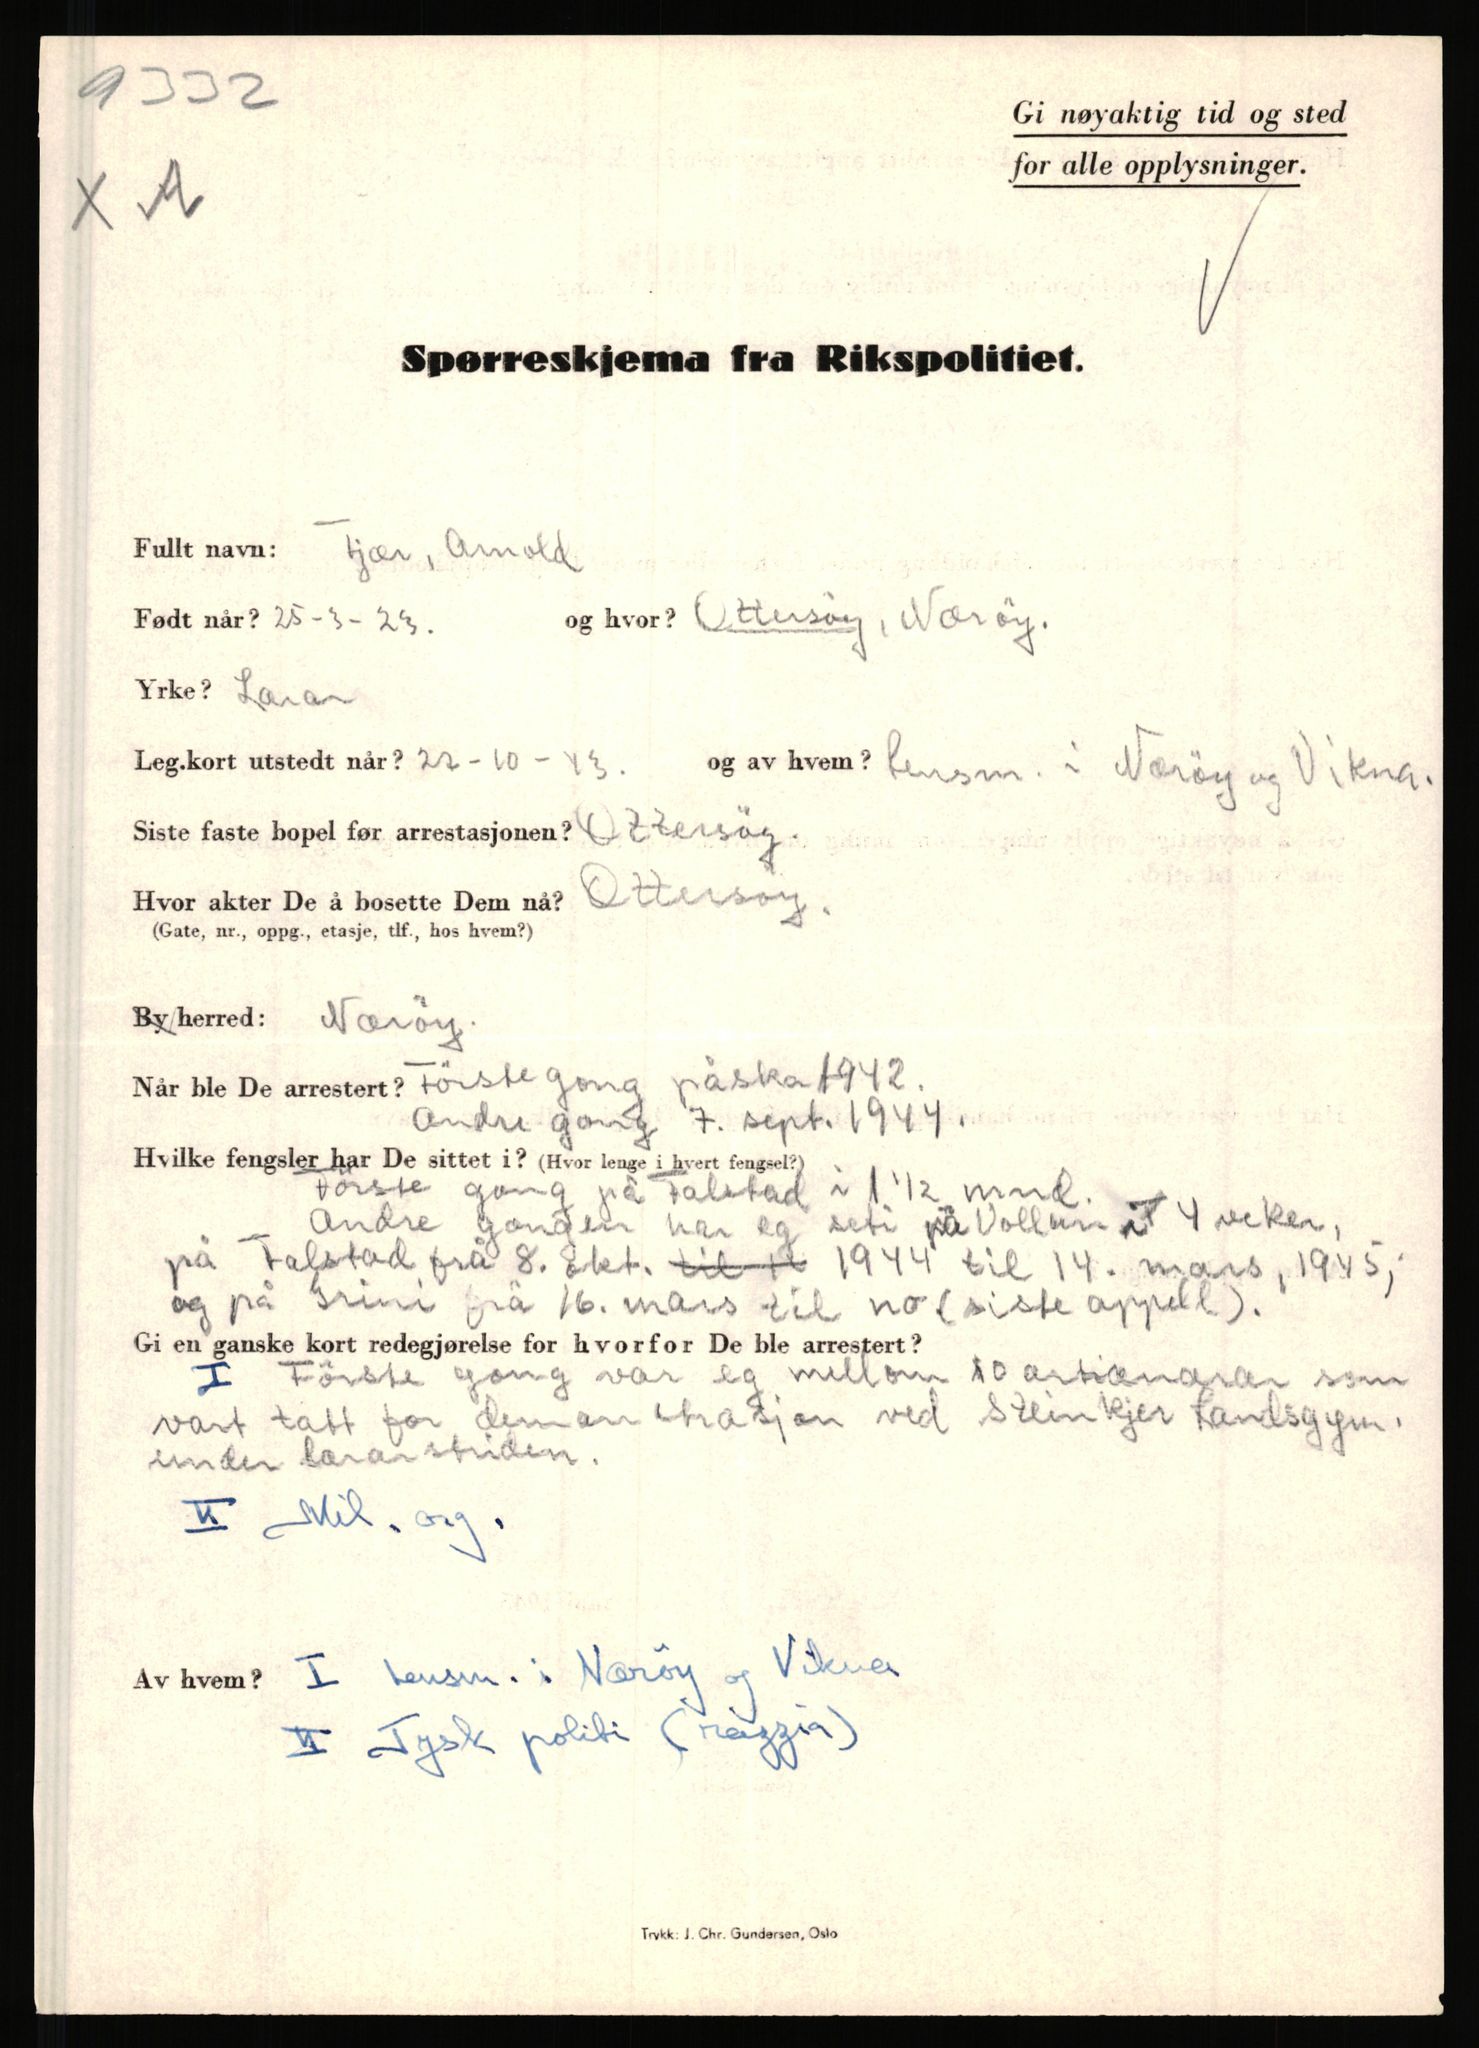 9332
X A
Gi nøyaktig tid og sted
for alle opplysninger.
Spørreskjema fra Rikspolitiet.
Fullt navn: Fjær, Arnold
Født når? 25-3-23. og hvor? Ottersöy, Næröy.
Yrke? Lærar
Leg.kort utstedt når? 22-10-43. og av hvem? Lensm. i Næröy og Vikna.
Siste faste bopel før arrestasjonen? Ottersöy.
Hvor akter De å bosette Dem nå? Ottersöy.
(Gate, nr., oppg., etasje, tlf., hos hvem?)
By/herred: Næröy.
Når ble De arrestert? Förste gong påska 1942.
Andre gong 7. sept. 1944.
Hvilke fengsler har De sittet i? (Hvor lenge i hvert fengsel?)
Förste gong på Falstad i 1 1/2 mnd.
Andre gongen har eg seti på Vollan i 4 veker,
på Falstad frå 8. okt. 1944 til 14. mars, 1945,
og på Grini frå 16. mars til no (siste appell).
Gi en ganske kort redegjørelse for hvorfor De ble arrestert?
I Förste gong var eg mellom 10 artianarar som
vart tatt for demonstrasjon ved Steinkjer Landsgym.
under lærarstriden.
II Mil. org.
Av hvem? I Lensm. i Næröy og Vikna
II Tysk politi (razzia)
Trykk: J. Chr. Gundersen, Oslo